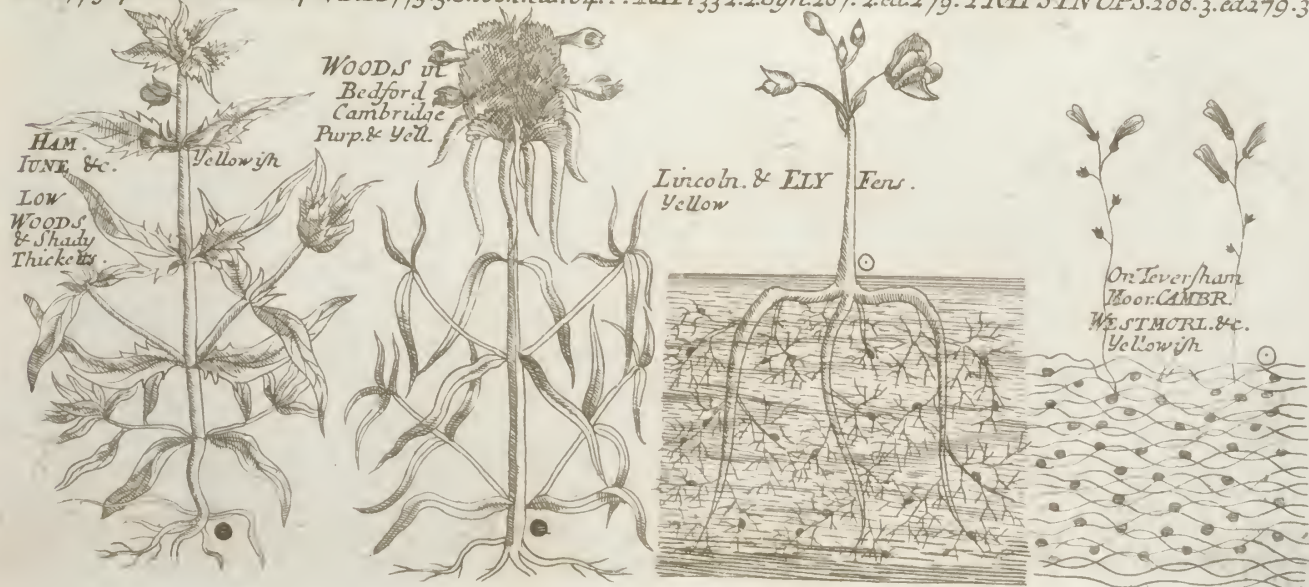 SYNOPS.208.3.ed.279.3
HAM.
IUNE &c.
Yellowish
Low
WOODS
& Shady
Thicketts.
WOODS in
Bedford
Cambridge
Purp. & Yell.
Lincoln. & ELY Fens.
Yellow
On Teversham
Moor. CAMBR.
WESTMORL. &c.
Yellowish